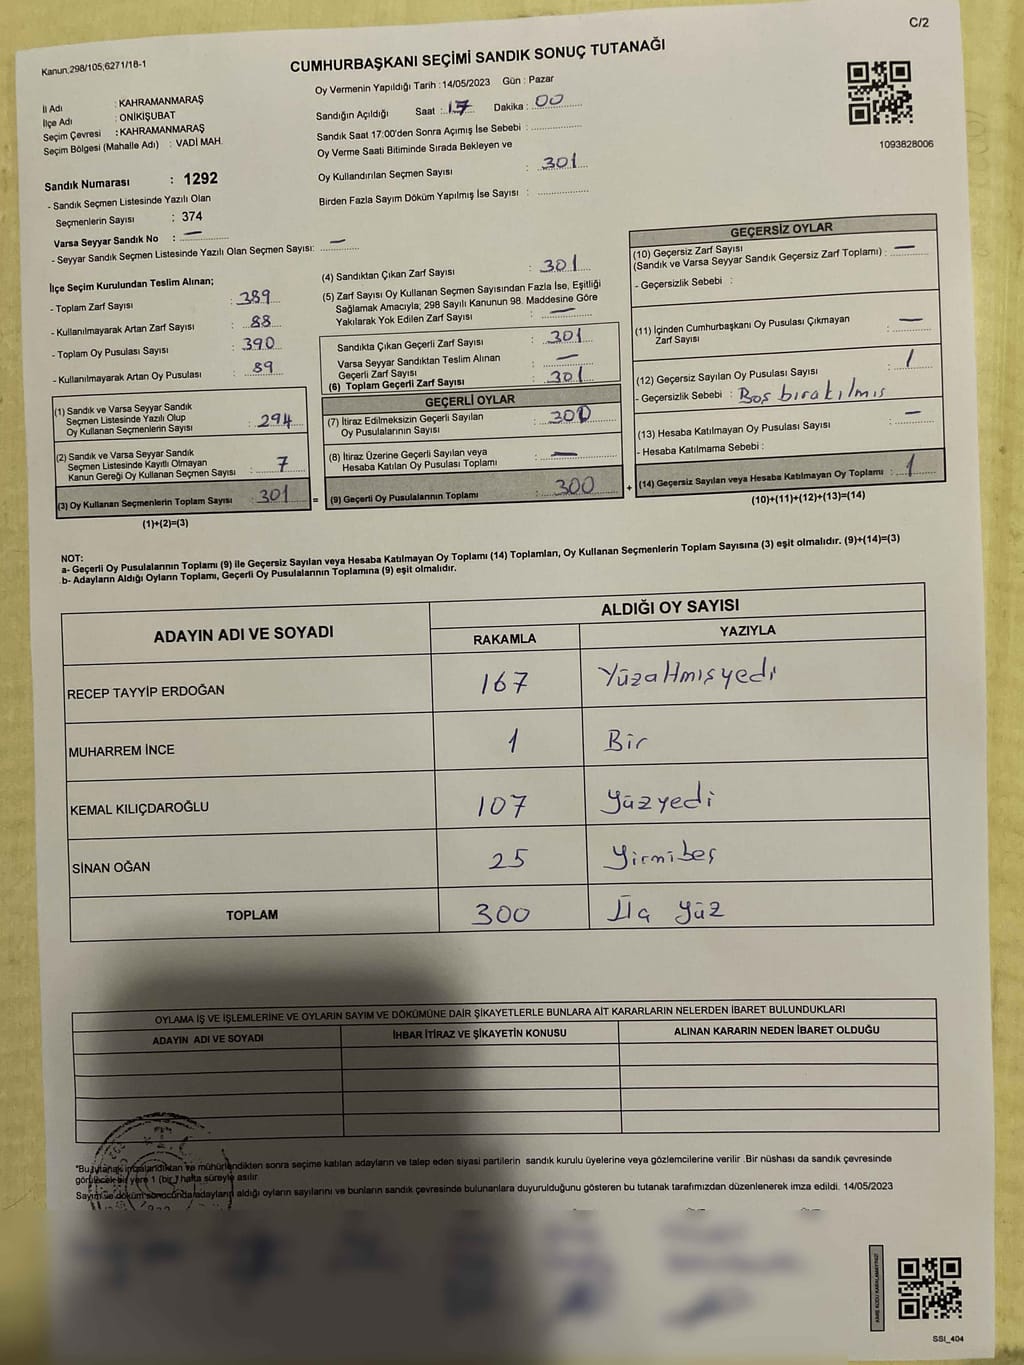 C/2
Kanun,298/105,6271/18-1
CUMHURBAŞKANI SEÇİMİ SANDIK SONUÇ TUTANAĞI
Oy Vermenin Yapıldığı Tarih : 14/05/2023 Gün : Pazar
İl Adı : KAHRAMANMARAŞ
İlçe Adı : ONİKİŞUBAT
Seçim Çevresi : KAHRAMANMARAŞ
Seçim Bölgesi (Mahalle Adı) : VADİ MAH.
Sandığın Açıldığı Saat : 17 Dakika : 00
Sandık Saat 17:00'den Sonra Açımış İse Sebebi :
Oy Verme Saati Bitiminde Sırada Bekleyen ve
Oy Kullandırılan Seçmen Sayısı : 301
Birden Fazla Sayım Döküm Yapılmış İse Sayısı :
1093828006
Sandık Numarası : 1292
- Sandık Seçmen Listesinde Yazılı Olan
Seçmenlerin Sayısı : 374
Varsa Seyyar Sandık No : —
- Seyyar Sandık Seçmen Listesinde Yazılı Olan Seçmen Sayısı: —
İlçe Seçim Kurulundan Teslim Alınan;
- Toplam Zarf Sayısı : 389
- Kullanılmayarak Artan Zarf Sayısı : 88
- Toplam Oy Pusulası Sayısı : 390
- Kullanılmayarak Artan Oy Pusulası : 89
(1) Sandık ve Varsa Seyyar Sandık
Seçmen Listesinde Yazılı Olup
Oy Kullanan Seçmenlerin Sayısı : 294
(2) Sandık ve Varsa Seyyar Sandık
Seçmen Listesinde Kayıtlı Olmayan
Kanun Gereği Oy Kullanan Seçmen Sayısı : 7
(3) Oy Kullanan Seçmenlerin Toplam Sayısı : 301
(1)+(2)=(3)
(4) Sandıktan Çıkan Zarf Sayısı : 301
(5) Zarf Sayısı Oy Kullanan Seçmen Sayısından Fazla İse, Eşitliği
Sağlamak Amacıyla; 298 Sayılı Kanunun 98. Maddesine Göre
Yakılarak Yok Edilen Zarf Sayısı : —
Sandıkta Çıkan Geçerli Zarf Sayısı : 301
Varsa Seyyar Sandıktan Teslim Alınan
Geçerli Zarf Sayısı : —
(6) Toplam Geçerli Zarf Sayısı : 301
GEÇERLİ OYLAR
(7) İtiraz Edilmeksizin Geçerli Sayılan
Oy Pusulalarının Sayısı : 300
(8) İtiraz Üzerine Geçerli Sayılan veya
Hesaba Katılan Oy Pusulası Toplamı : —
= (9) Geçerli Oy Pusulalarının Toplamı : 300
GEÇERSİZ OYLAR
(10) Geçersiz Zarf Sayısı
(Sandık ve Varsa Seyyar Sandık Geçersiz Zarf Toplamı) : —
- Geçersizlik Sebebi :
(11) İçinden Cumhurbaşkanı Oy Pusulası Çıkmayan
Zarf Sayısı : —
(12) Geçersiz Sayılan Oy Pusulası Sayısı : 1
- Geçersizlik Sebebi : Boş bırakılmış
(13) Hesaba Katılmayan Oy Pusulası Sayısı : —
- Hesaba Katılmama Sebebi :
+ (14) Geçersiz Sayılan veya Hesaba Katılmayan Oy Toplamı : 1
(10)+(11)+(12)+(13)=(14)
NOT:
a- Geçerli Oy Pusulalarının Toplamı (9) ile Geçersiz Sayılan veya Hesaba Katılmayan Oy Toplamı (14) Toplamları, Oy Kullanan Seçmenlerin Toplam Sayısına (3) eşit olmalıdır. (9)+(14)=(3)
b- Adayların Aldığı Oyların Toplamı, Geçerli Oy Pusulalarının Toplamına (9) eşit olmalıdır.
ADAYIN ADI VE SOYADI ALDIĞI OY SAYISI
RAKAMLA YAZIYLA
RECEP TAYYİP ERDOĞAN 167 Yüzaltmışyedi
MUHARREM İNCE 1 Bir
KEMAL KILIÇDAROĞLU 107 Yüzyedi
SİNAN OĞAN 25 Yirmibeş
TOPLAM 300 Üç yüz
OYLAMA İŞ VE İŞLEMLERİNE VE OYLARIN SAYIM VE DÖKÜMÜNE DAİR ŞİKAYETLERLE BUNLARA AİT KARARLARIN NELERDEN İBARET BULUNDUKLARI
ADAYIN ADI VE SOYADI İHBAR İTİRAZ VE ŞİKAYETİN KONUSU ALINAN KARARIN NEDEN İBARET OLDUĞU
*Bu tutanak imzalandıktan ve mühürlendikten sonra seçime katılan adayların ve talep eden siyasi partilerin sandık kurulu üyelerine veya gözlemcilerine verilir .Bir nüshası da sandık çevresinde
görülecek bir yere 1 (bir ) hafta süreyle asılır.
Sayım ve döküm sonucunda adayların aldığı oyların sayılarını ve bunların sandık çevresinde bulunanlara duyurulduğunu gösteren bu tutanak tarafımızdan düzenlenerek imza edildi. 14/05/2023
SSI_404